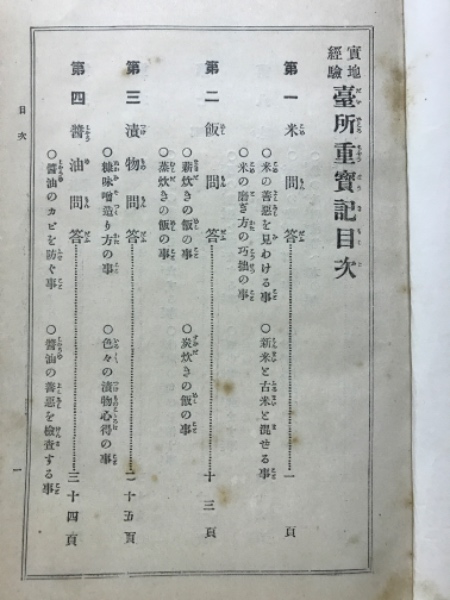 實地經驗 臺所重寶記目次
第一 米問答……一頁
○米の善惡を見わける事 ○新米と古米と混せる事
○米の磨ぎ方の巧拙の事
第二 飯問答……十三頁
○薪炊きの飯の事 ○炭炊きの飯の事
○蒸炊きの飯の事
第三 漬物問答……二十五頁
○糠味噌造り方の事 ○色々の漬物心得の事
第四 醬油問答……三十四頁
○醬油のカビを防ぐ事 ○醬油の善惡を檢査する事
目次
一